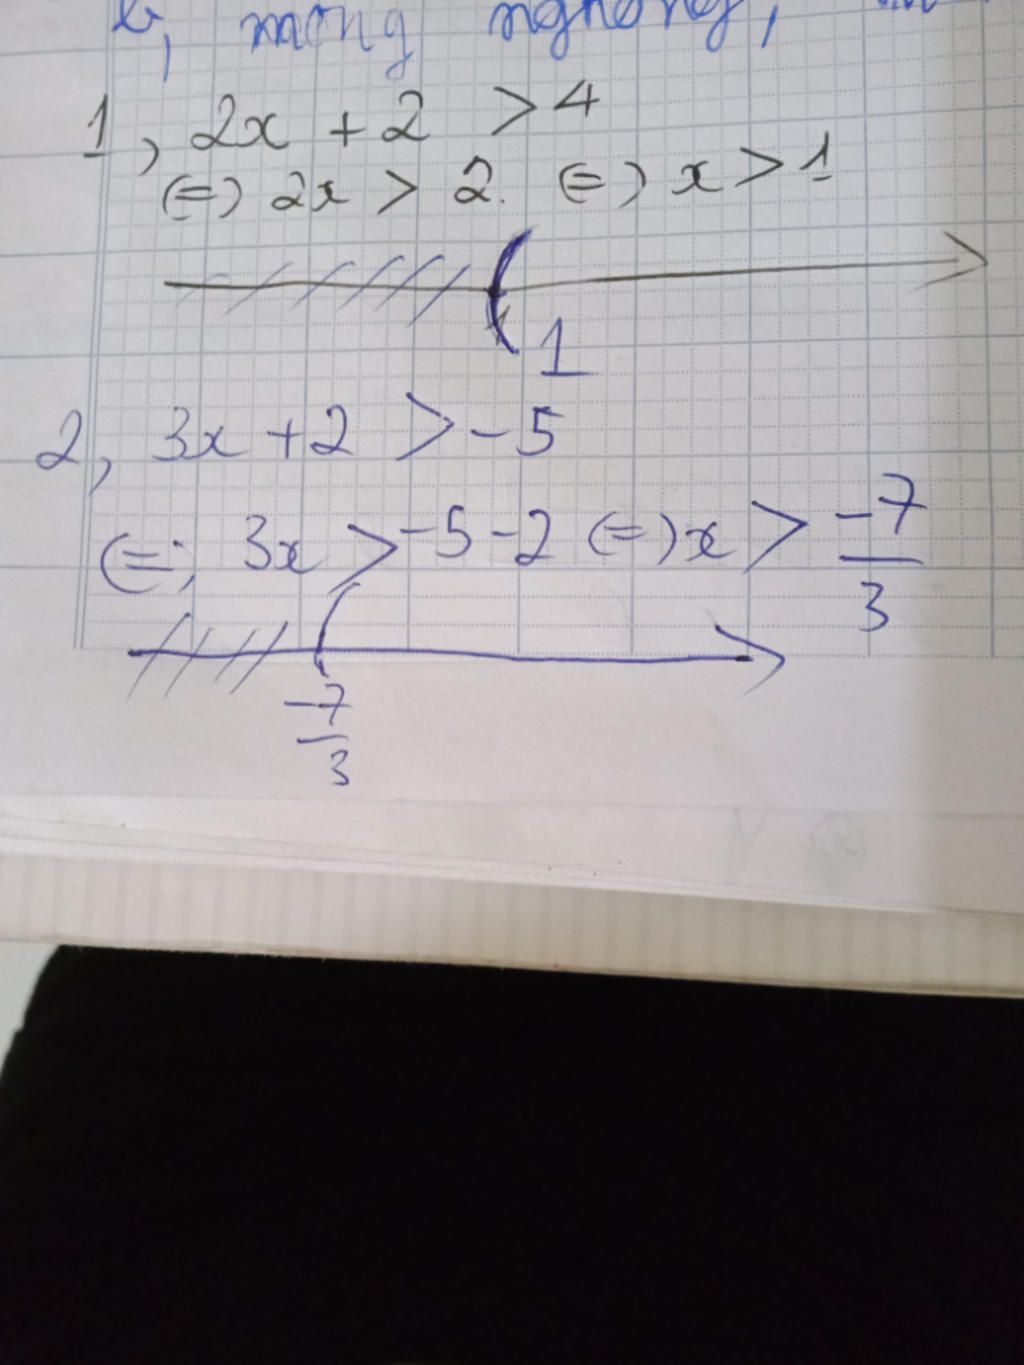 b, mong ngóng,
1, 2x + 2 > 4
(=) 2x > 2. (=) x > 1
1
2, 3x + 2 > -5
(=) 3x > -5 - 2 (=) x > -7/3
-7/3